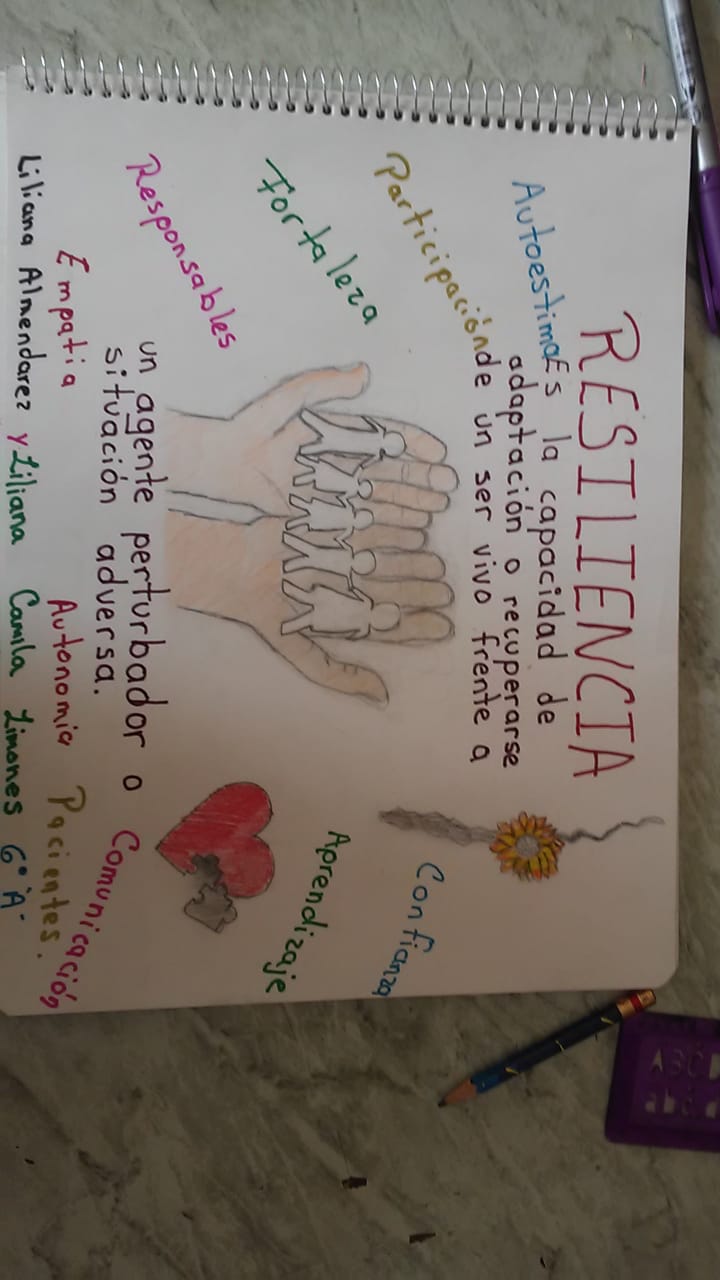 RESILIENCIA
Es la capacidad de
adaptación o recuperarse
de un ser vivo frente a
un agente perturbador o
situación adversa.
Autoestima
Participación
Fortaleza
Responsables
Empatia
Confianza
Aprendizaje
Comunicación
Autonomia
Pacientes.
Liliana Almendarez y Liliana Camila Limones 6° "A"
ABC
abc